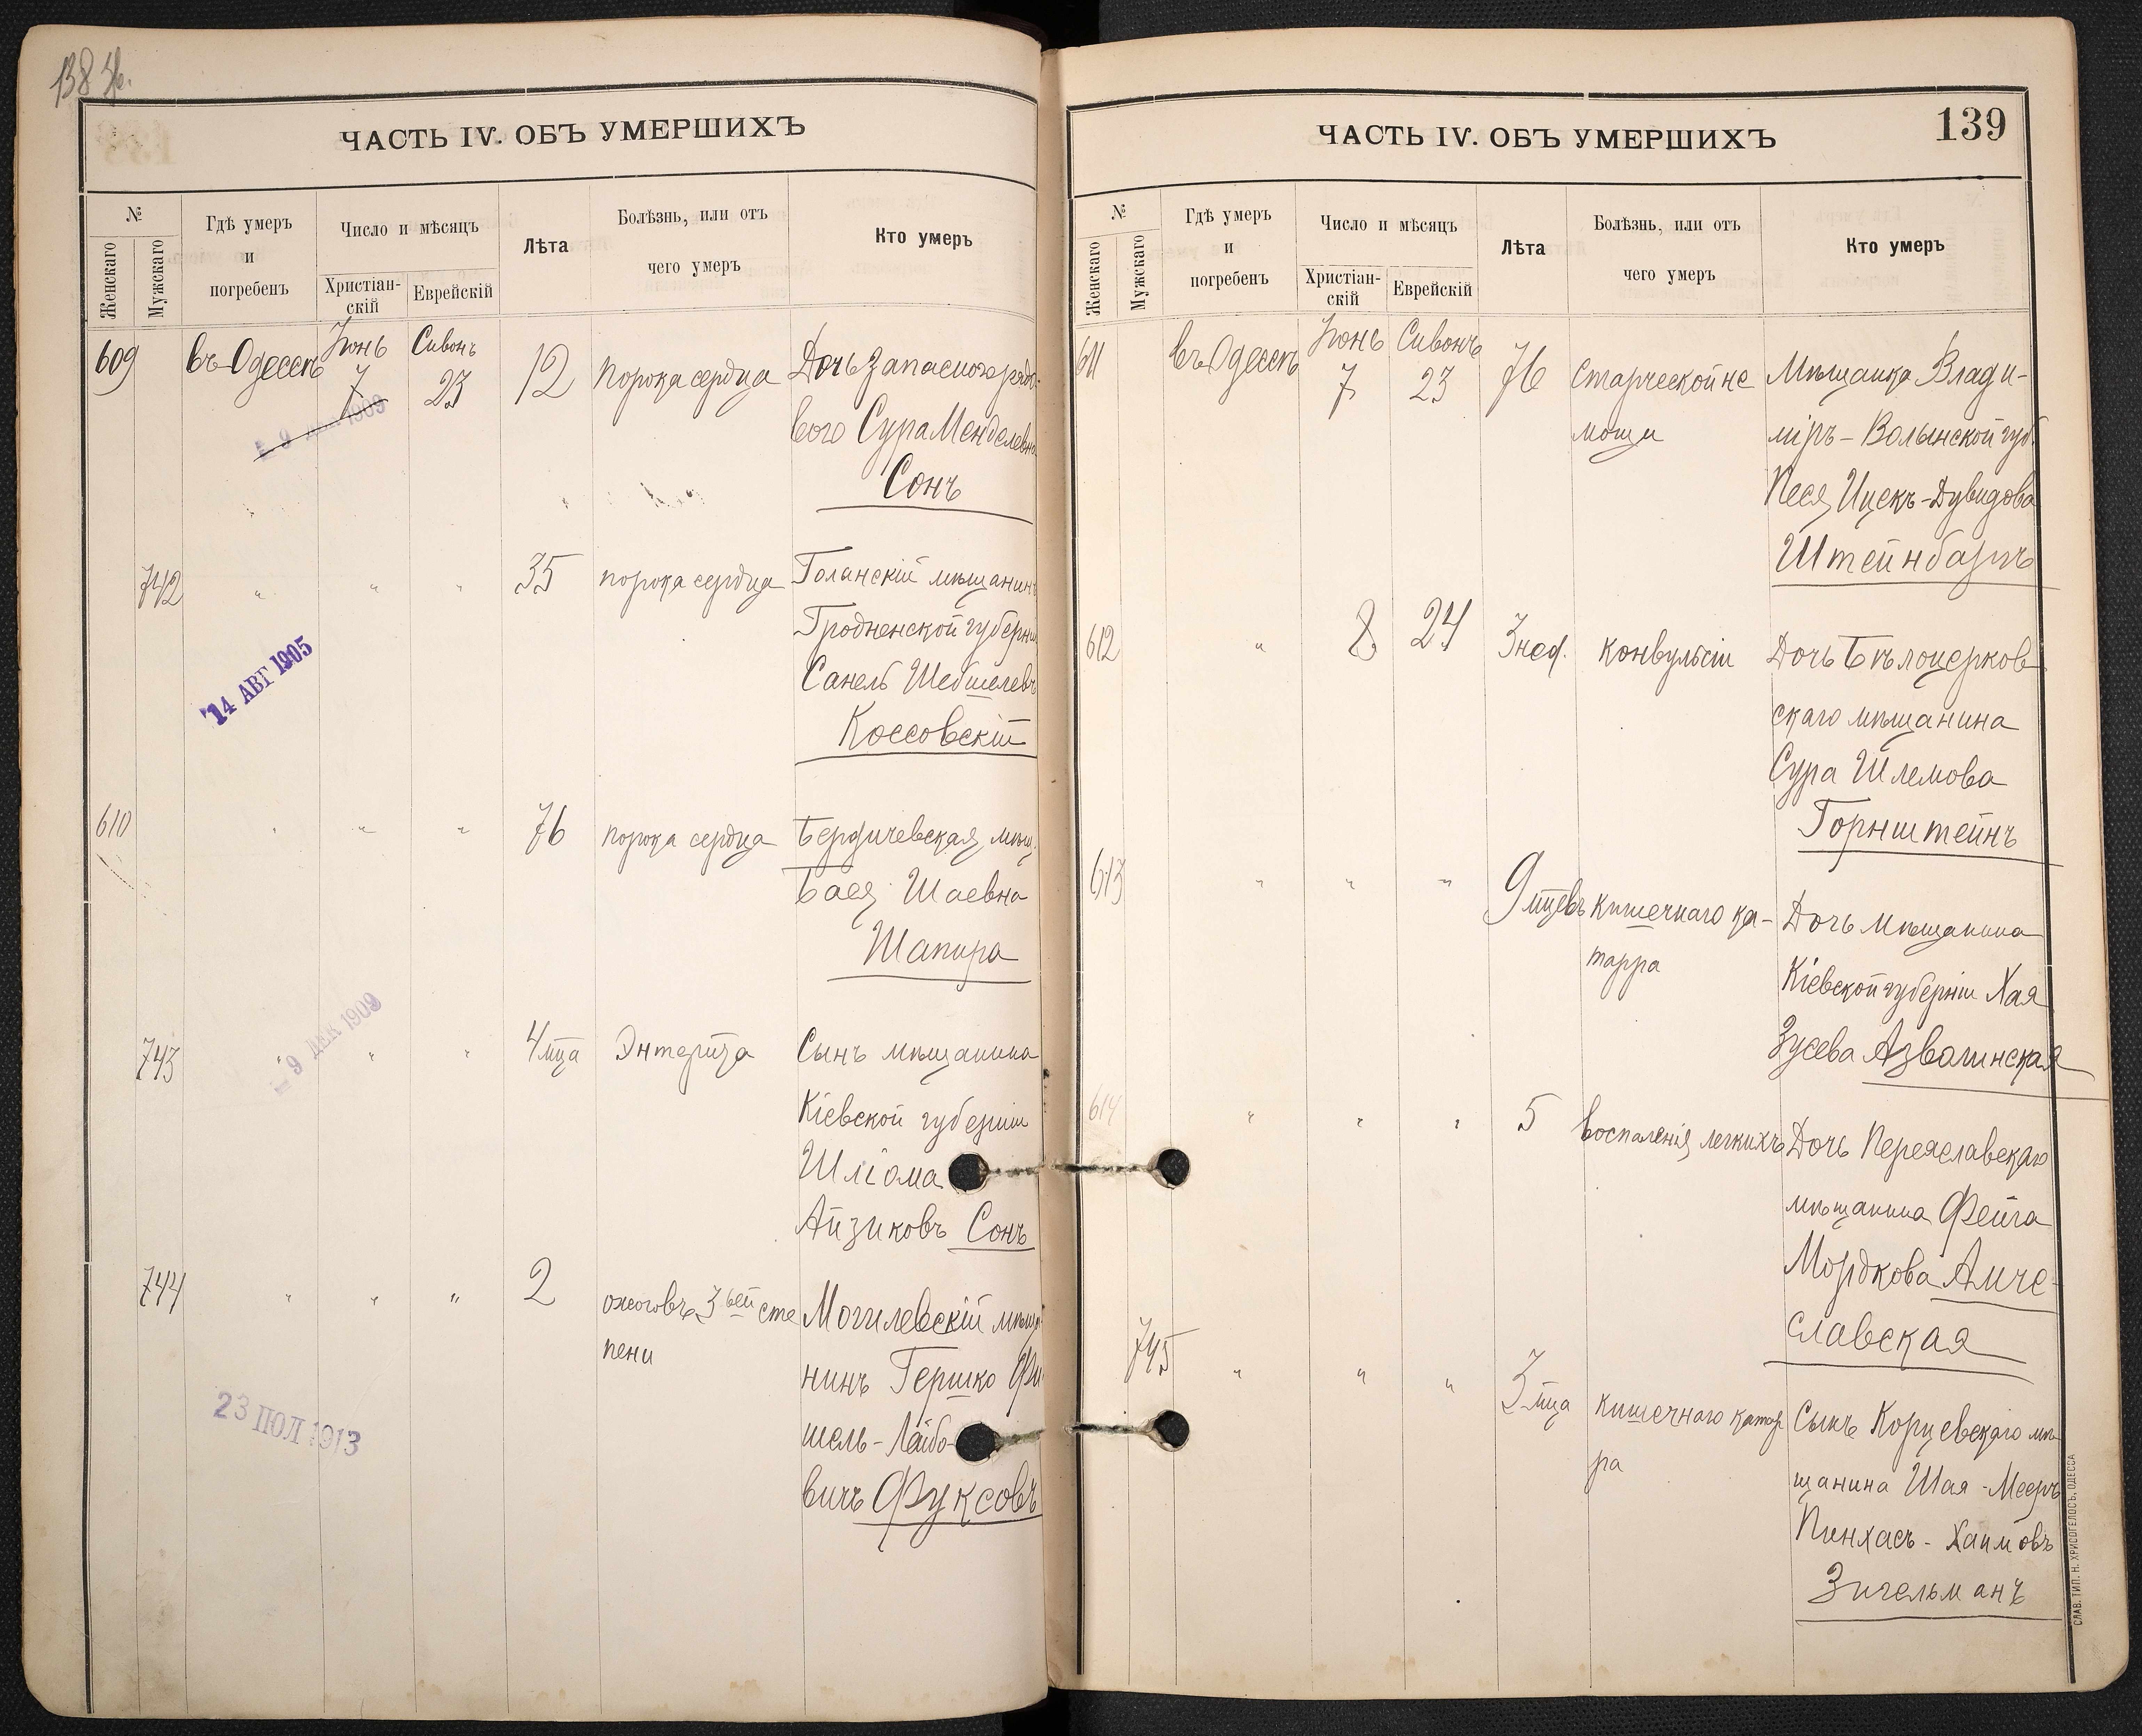 ЧАСТЬ IV. ОБЪ УМЕРШИХЪ
№
Женскаго
Мужскаго
Гдѣ умеръ
и
погребенъ
Число и мѣсяцъ
Христіан-
скій
Еврейскій
Лѣта
Болѣзнь, или отъ
чего умеръ
Кто умеръ
609 въ Одессѣ Іюнь 7 Сивонъ 23 12 порока сердца Дочь запасного рядо-
вого Сура Менделевна
Сонъ
742 " " " 35 порока сердца Голанскій мѣщанинъ
Гродненской губерніи
Санель Шебшелевъ
Коссовскій
14 АВГ 1905
610 " " " 76 порока сердца Бердичевская мѣщ.
Бася Шаевна
Шапира
743 " " " 4 мца Энтерита Сынъ мѣщанина
Кіевской губерніи
Шліома
Айзиковъ Сонъ
9 ДЕК 1909
744 " " " 2 ожоговъ 3ьей сте
пени
Могилевскій мѣща
нинъ Гершко Фи
шель-Лейбо-
вичъ Фуксовъ
23 ІЮЛ 1913
ЧАСТЬ IV. ОБЪ УМЕРШИХЪ
139
№
Женскаго
Мужскаго
Гдѣ умеръ
и
погребенъ
Число и мѣсяцъ
Христіан-
скій
Еврейскій
Лѣта
Болѣзнь, или отъ
чего умеръ
Кто умеръ
611 въ Одессѣ Іюнь 7 Сивонъ 23 76 старческой не
мощи
Мѣщанка Влади-
міръ-Волынской губ.
Песя Ицекъ-Дувидова
Штейнбаргъ
612 " 8 24 3 нед. конвульсіи Дочь Бѣлоцерков
скаго мѣщанина
Сура Шлемова
Горнштейнъ
613 " " " 9 мцевъ кишечнаго ка-
тарра
Дочь мѣщанина
Кіевской губерніи Хая
Зусева Азвалинская
614 " " " 5 воспаленія легкихъ Дочь Переяславскаго
мѣщанина Фейга
Мордкова Амче-
славская
745 " " " 3 мца кишечнаго катар
ра
Сынъ Корцевскаго мѣ
щанина Шая-Мееръ
Пинхасъ-Хаимовъ
Зигельманъ
СЛАВ. ТИП. Н. ХРИСОГЕЛОСЪ, ОДЕССА